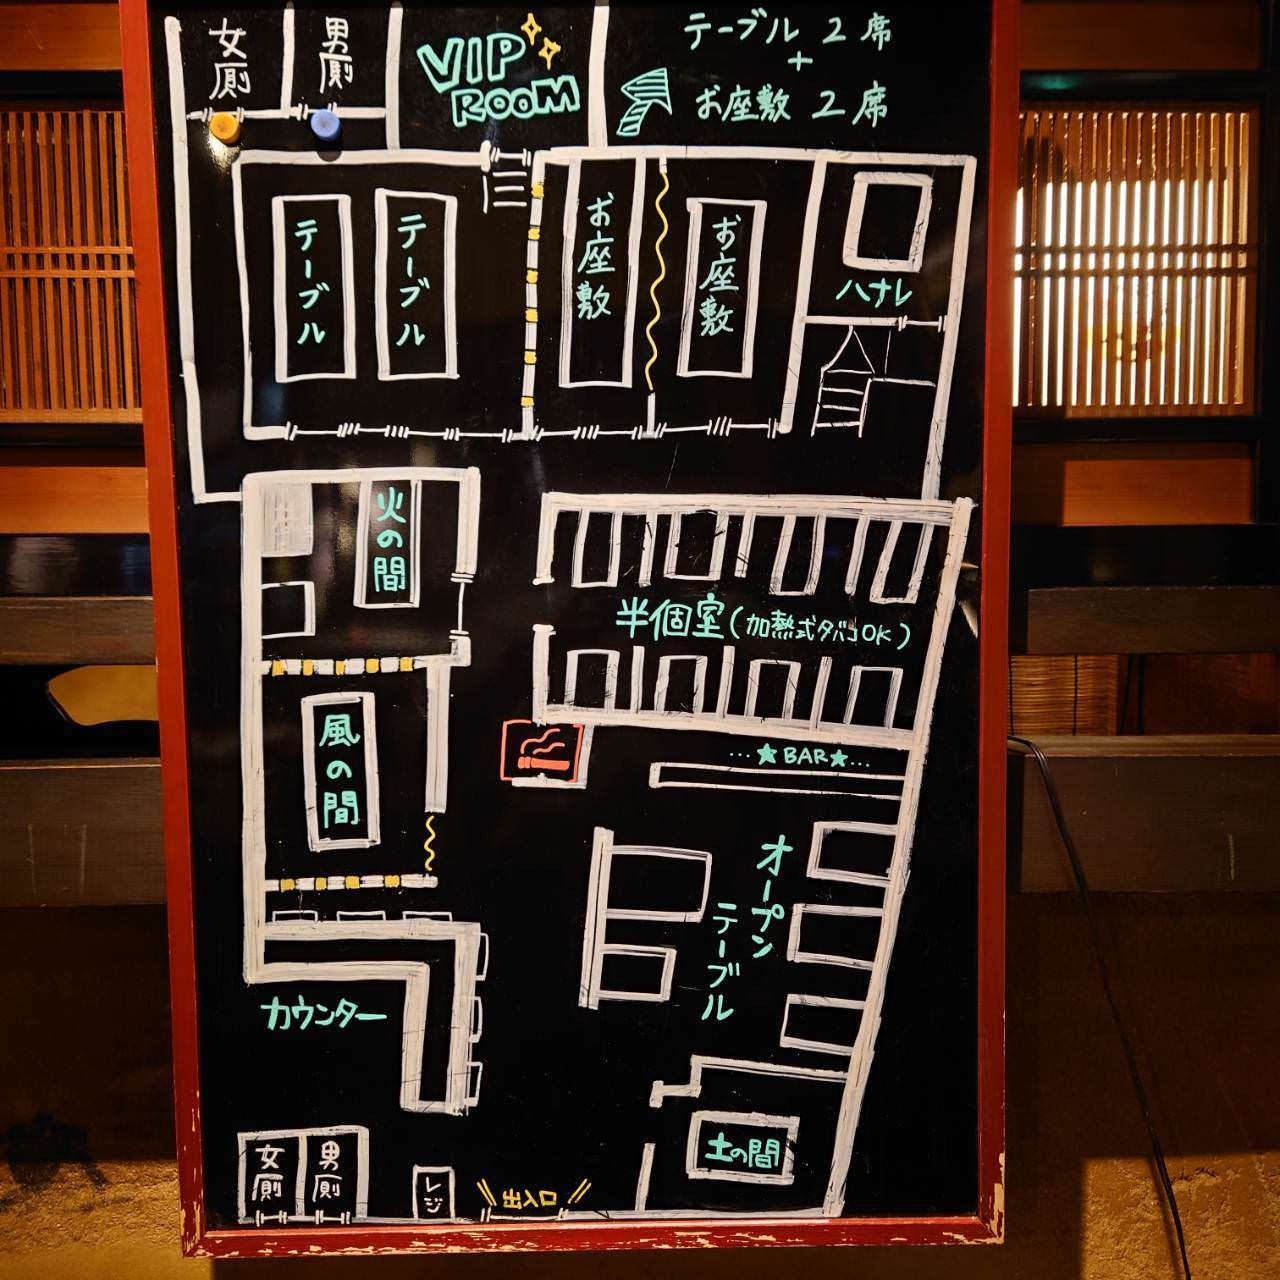 女厠
男厠
VIP
ROOM
テーブル 2席
+
お座敷 2席
テーブル
テーブル
お座敷
お座敷
ハナレ
火の間
半個室(加熱式タバコOK)
風の間
…★BAR★…
オープン
テーブル
カウンター
土の間
女厠
男厠
レジ
出入口